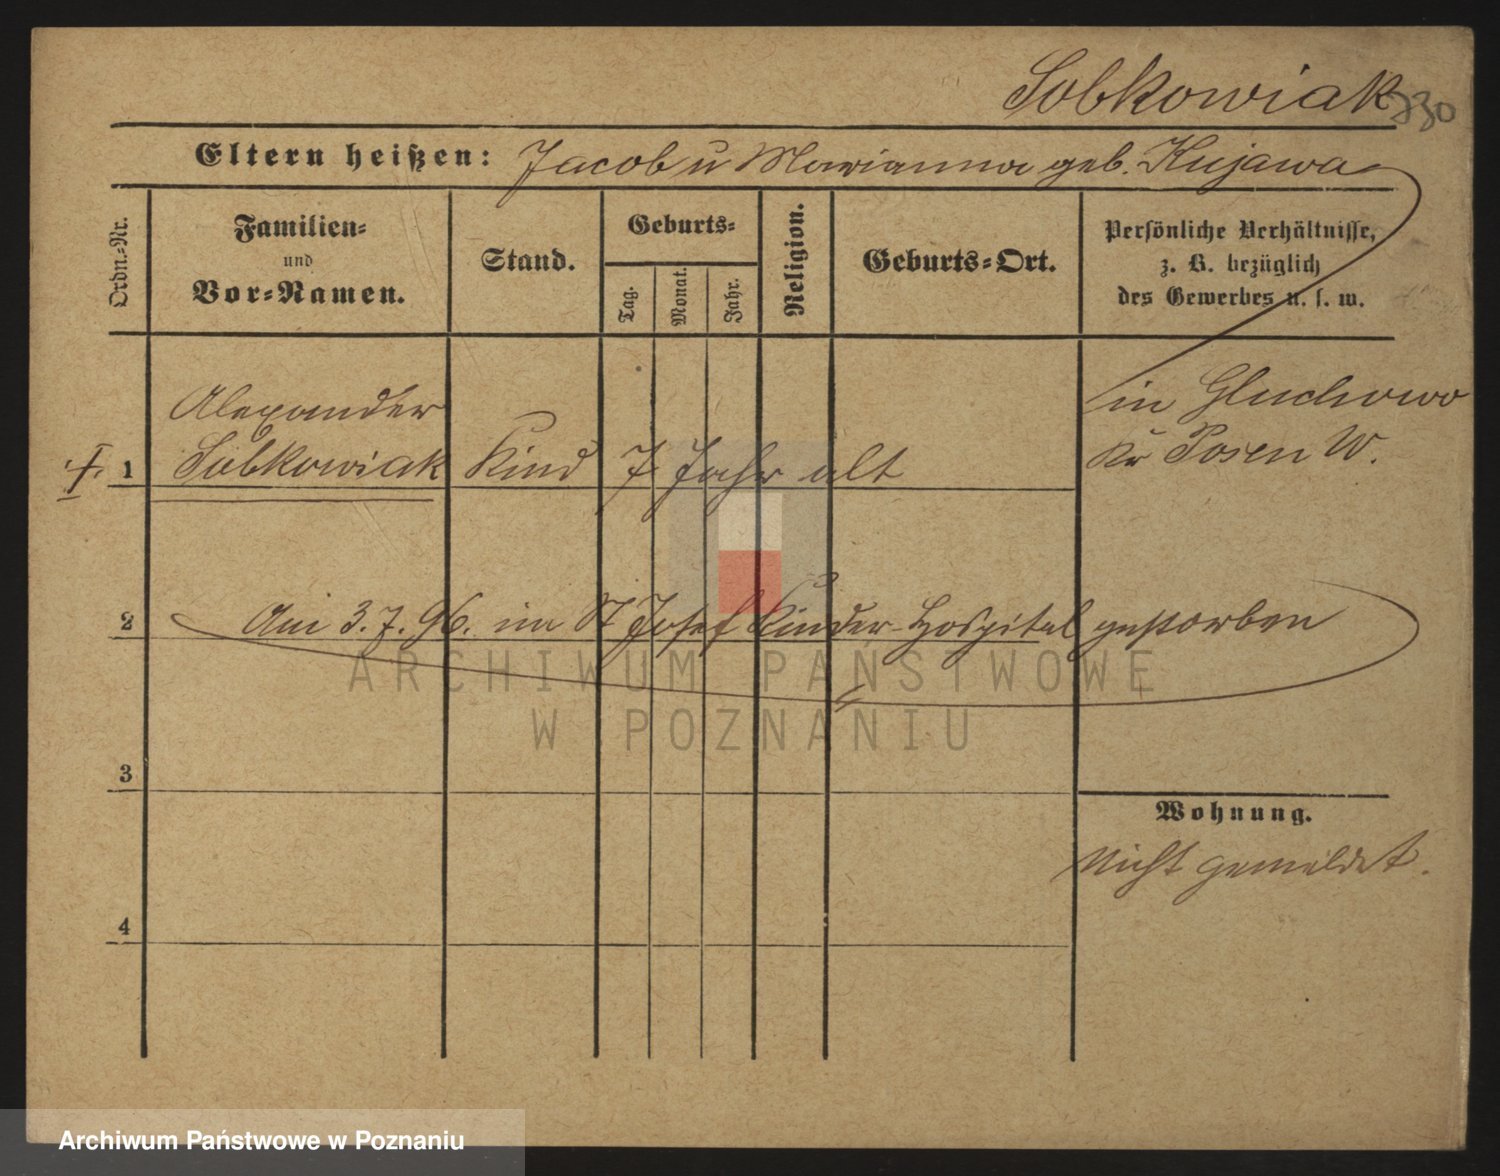 Sobkowiak 730
Eltern heißen: Jacob u Marianna geb. Kujawa
Ordn.-Nr.
Familien-
und
Vor-Namen.
Stand.
Geburts-
Tag.
Monat.
Jahr.
Religion.
Geburts-Ort.
Persönliche Verhältnisse,
z. B. bezüglich
des Gewerbes u. s. w.
in Gluchowo
Kr Posen W.
Alexander
† 1 Sobkowiak Kind 7 Jahr alt
2 Am 3.7.96. im St Josef Kinder-Hospital gestorben
ARCHIWUM PAŃSTWOWE
W POZNANIU
3
Wohnung.
Nicht gemeldet.
4
Archiwum Państwowe w Poznaniu